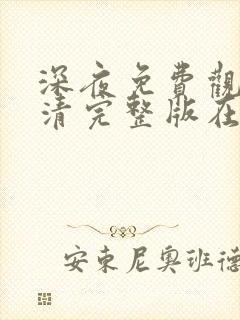 深夜免費觀
清完整版在
安東尼奧班德